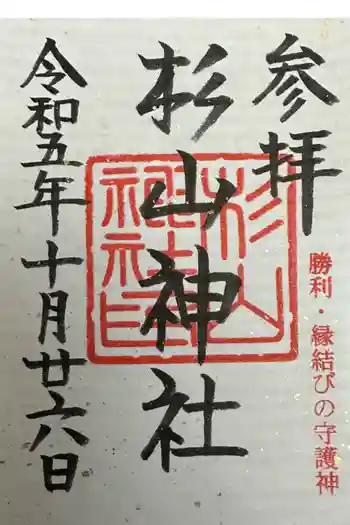 参拝
勝利・縁結びの守護神
杉山神社
杉山
神社印
令和五年十月廿六日